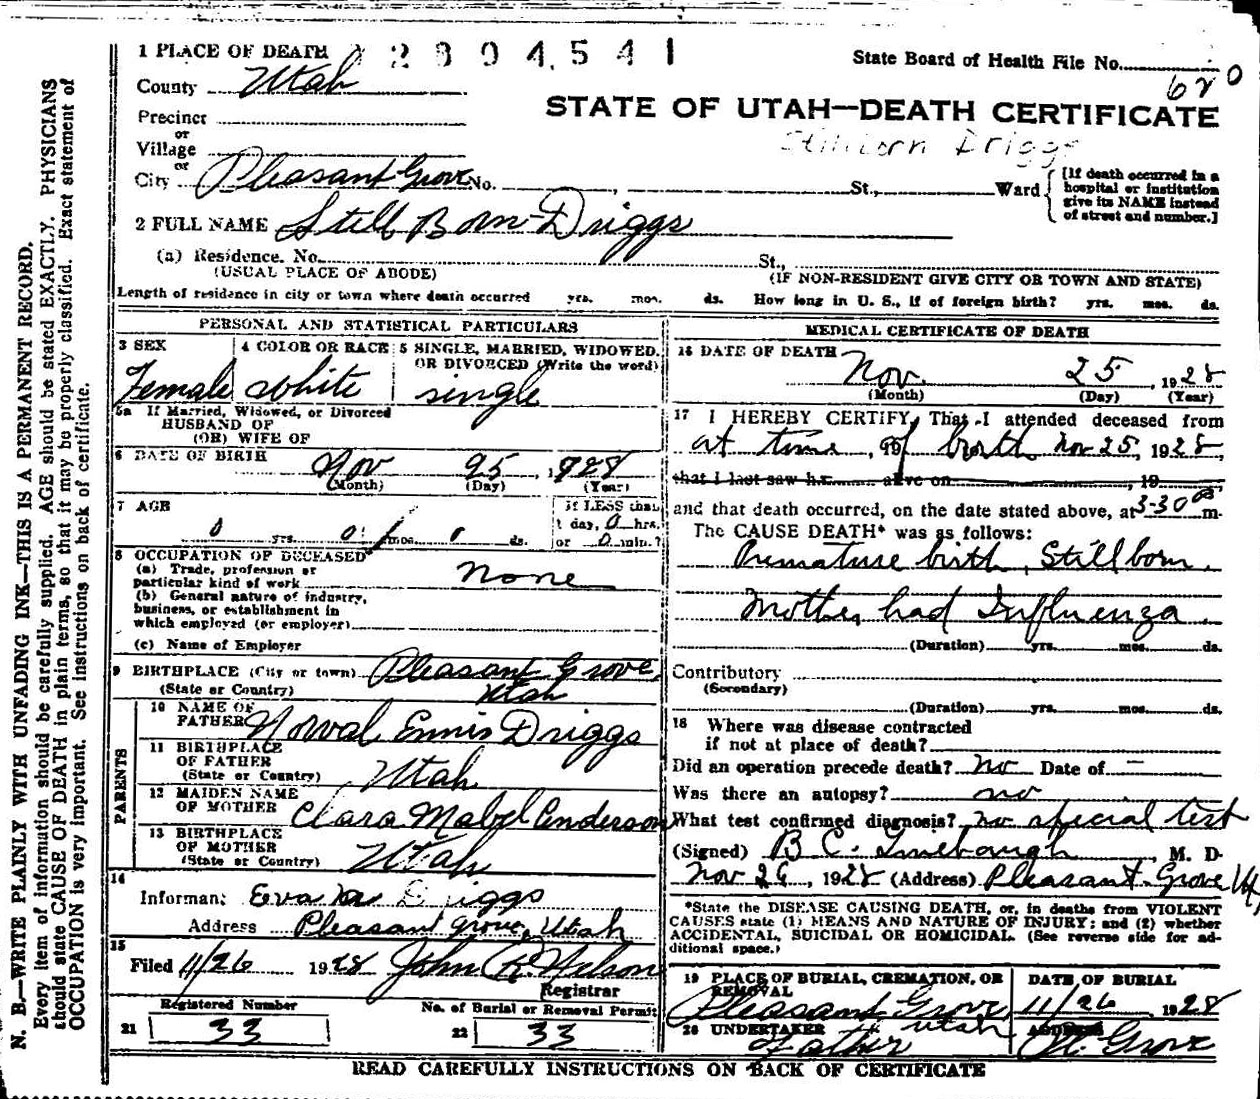 1 PLACE OF DEATH 2804541
State Board of Health File No. 620
County Utah
STATE OF UTAH—DEATH CERTIFICATE
Precinct
or
Stillborn Driggs
Village
or
City Pleasant Grove No. , St., Ward
[If death occurred in a hospital or institution give its NAME instead of street and number.]
2 FULL NAME Still Born Driggs
(a) Residence. No. St.,
(USUAL PLACE OF ABODE) (IF NON-RESIDENT GIVE CITY OR TOWN AND STATE)
Length of residence in city or town where death occurred yrs. mos. ds. How long in U. S., if of foreign birth? yrs. mos. ds.
PERSONAL AND STATISTICAL PARTICULARS
3 SEX Female
4 COLOR OR RACE white
5 SINGLE, MARRIED, WIDOWED, OR DIVORCED (Write the word) single
5a If Married, Widowed, or Divorced
HUSBAND OF
(OR) WIFE OF
6 DATE OF BIRTH Nov 25, 1928
(Month) (Day) (Year)
7 AGE 0 yrs. 0 mos. ds.
If LESS than
1 day, 0 hrs.
or 0 min.?
8 OCCUPATION OF DECEASED
(a) Trade, profession or
particular kind of work none
(b) General nature of industry,
business, or establishment in
which employed (or employer)
(c) Name of Employer
9 BIRTHPLACE (City or town) Pleasant Grove,
(State or Country) Utah
PARENTS
10 NAME OF
FATHER Norval Ennis Driggs
11 BIRTHPLACE
OF FATHER
(State or Country) Utah
12 MAIDEN NAME
OF MOTHER Clara Mabel Anderson
13 BIRTHPLACE
OF MOTHER
(State or Country) Utah
14
Informant Driggs
Address Pleasant Grove, Utah
15
Filed 11/26 1928 John R. Nelson
Registrar
Registered Number No. of Burial or Removal Permit
21 33 22 33
MEDICAL CERTIFICATE OF DEATH
16 DATE OF DEATH Nov. 25, 1928
(Month) (Day) (Year)
17 I HEREBY CERTIFY, That I attended deceased from
at time, of birth Nov 25, 1928,
that I last saw h alive on , 19
and that death occurred, on the date stated above, at 3-30 m.
The CAUSE DEATH* was as follows:
Premature birth, Stillborn.
Mother had Influenza
(Duration) yrs. mos. ds.
Contributory
(Secondary)
(Duration) yrs. mos. ds.
18 Where was disease contracted
if not at place of death?
Did an operation precede death? no Date of —
Was there an autopsy? no
What test confirmed diagnosis? no special test
(Signed) B C. , M. D.
Nov 26, 1928 (Address) Pleasant Grove Ut,
*State the DISEASE CAUSING DEATH, or, in deaths from VIOLENT
CAUSES state (1) MEANS AND NATURE OF INJURY; and (2) whether
ACCIDENTAL, SUICIDAL OR HOMICIDAL. (See reverse side for ad-
ditional space.)
19 PLACE OF BURIAL, CREMATION, OR
REMOVAL
Pleasant Grove
Utah
DATE OF BURIAL
11/26 1928
20 UNDERTAKER
Father
ADDRESS
Pl. Grove
READ CAREFULLY INSTRUCTIONS ON BACK OF CERTIFICATE
N. B.—WRITE PLAINLY WITH UNFADING INK—THIS IS A PERMANENT RECORD.
Every item of information should be carefully supplied. AGE should be stated EXACTLY. PHYSICIANS
should state CAUSE OF DEATH in plain terms, so that it may be properly classified. Exact statement of
OCCUPATION is very important. See instructions on back of certificate.